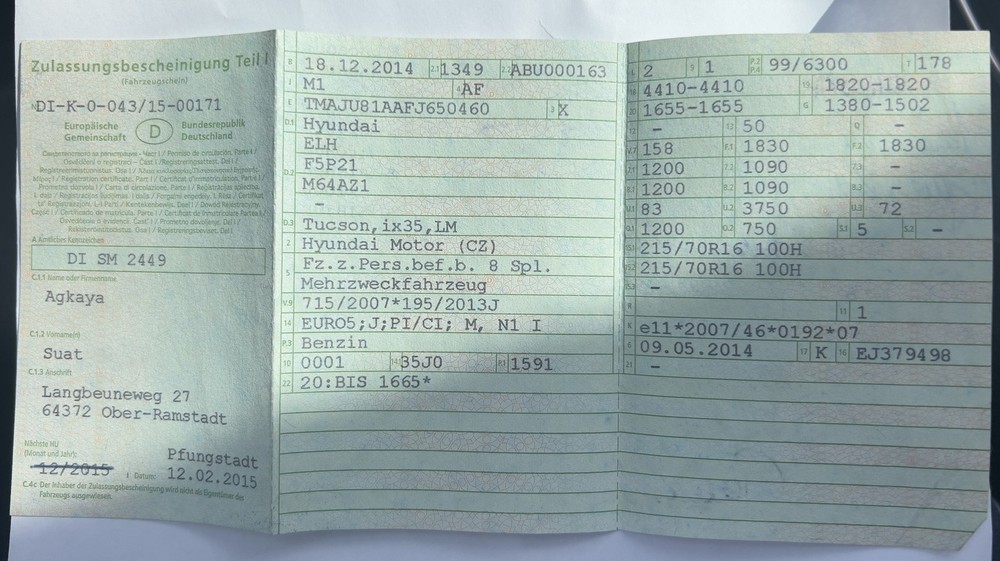 Zulassungsbescheinigung Teil I
(Fahrzeugschein)
DI-K-0-043/15-00171
Europäische Gemeinschaft
D
Bundesrepublik Deutschland
A Amtliches Kennzeichen
DI SM 2449
C.1.1 Name oder Firmenname
Agkaya
C.1.2 Vorname(n)
Suat
C.1.3 Anschrift
Langbeuneweg 27
64372 Ober-Ramstadt
Nächste HU
(Monat und Jahr):
12/2015
Pfungstadt
I Datum: 12.02.2015
C.4c Der Inhaber der Zulassungsbescheinigung wird nicht als Eigentümer des
Fahrzeugs ausgewiesen.
B 18.12.2014 2.1 1349 2.2 ABU000163
J M1 4 AF
E TMAJU81AAFJ650460 3 X
D.1 Hyundai
ELH
D.2 F5P21
M64AZ1
–
D.3 Tucson,ix35,LM
2 Hyundai Motor (CZ)
5 Fz.z.Pers.bef.b. 8 Spl.
Mehrzweckfahrzeug
V.9 715/2007*195/2013J
14 EURO5;J;PI/CI; M, N1 I
P.3 Benzin
10 0001 14.1 35J0 P.1 1591
22 20:BIS 1665*
L 2 9 1 P.2 P.4 99/6300 T 178
18 4410-4410 19 1820-1820
20 1655-1655 G 1380-1502
12 – 13 50 Q –
V.7 158 F.1 1830 F.2 1830
7.1 1200 7.2 1090 7.3 –
8.1 1200 8.2 1090 8.3 –
U.1 83 U.2 3750 U.3 72
O.1 1200 O.2 750 S.1 5 S.2 –
15.1 215/70R16 100H
15.2 215/70R16 100H
15.3 –
R 11 1
K e11*2007/46*0192*07
6 09.05.2014 17 K 16 EJ379498
21 –